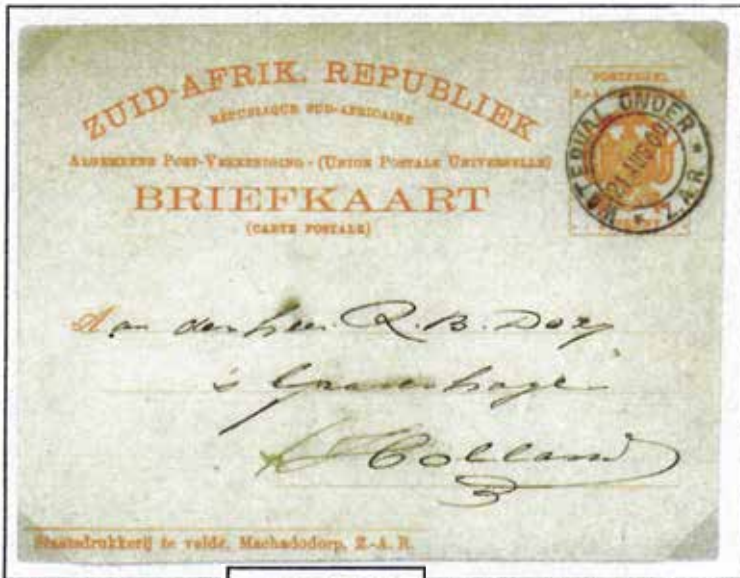 ZUID-AFRIK. REPUBLIEK
RÉPUBLIQUE SUD-AFRICAINE
ALGEMEENE POST-VEREENIGING - (UNION POSTALE UNIVERSELLE)
BRIEFKAART
(CARTE POSTALE)
POSTZEGEL
WATERVAL ONDER
21 AUG 00
Z.A.R.
Aan den heer R. B. Dozy
's Gravenhage
Holland
Staatsdrukkerij te velde, Machadodorp, Z.-A. R.